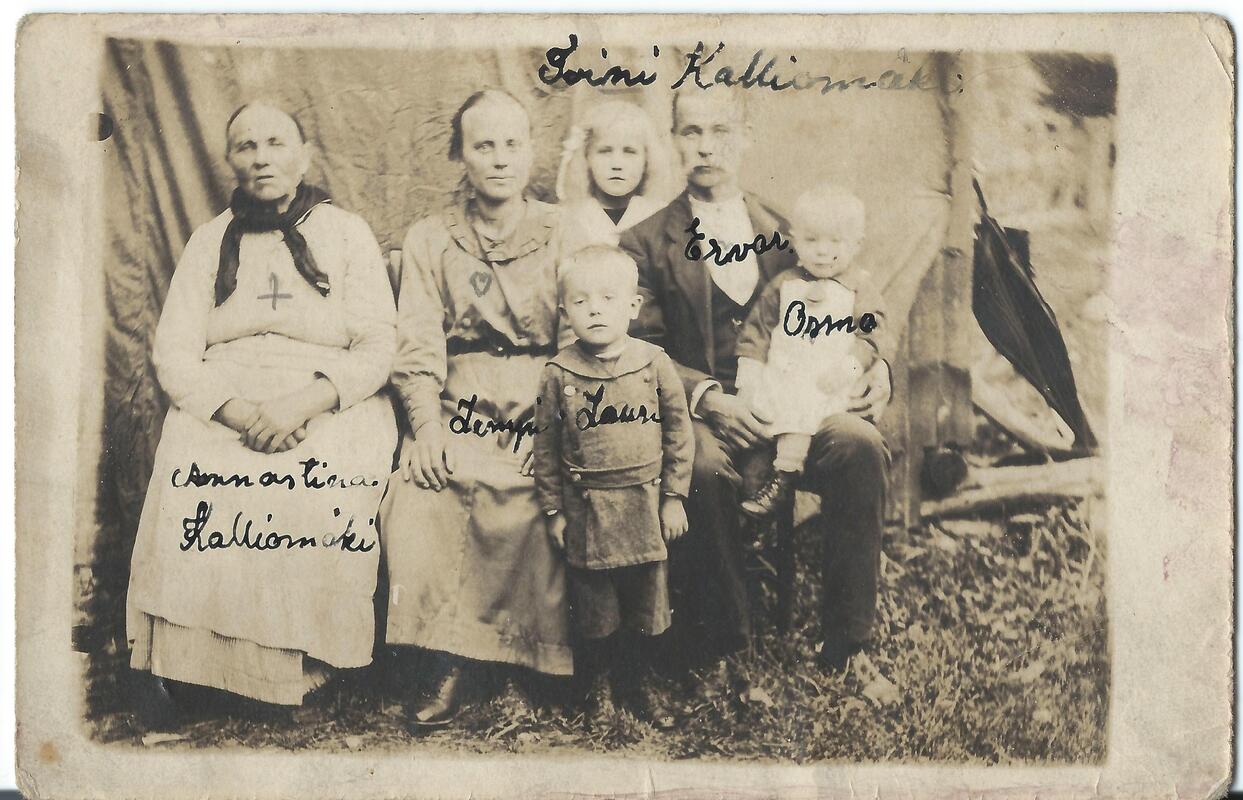 Toini Kalliomäki
Ervar.
Osmo
Tempi Lauri
Annastina
Kalliomäki